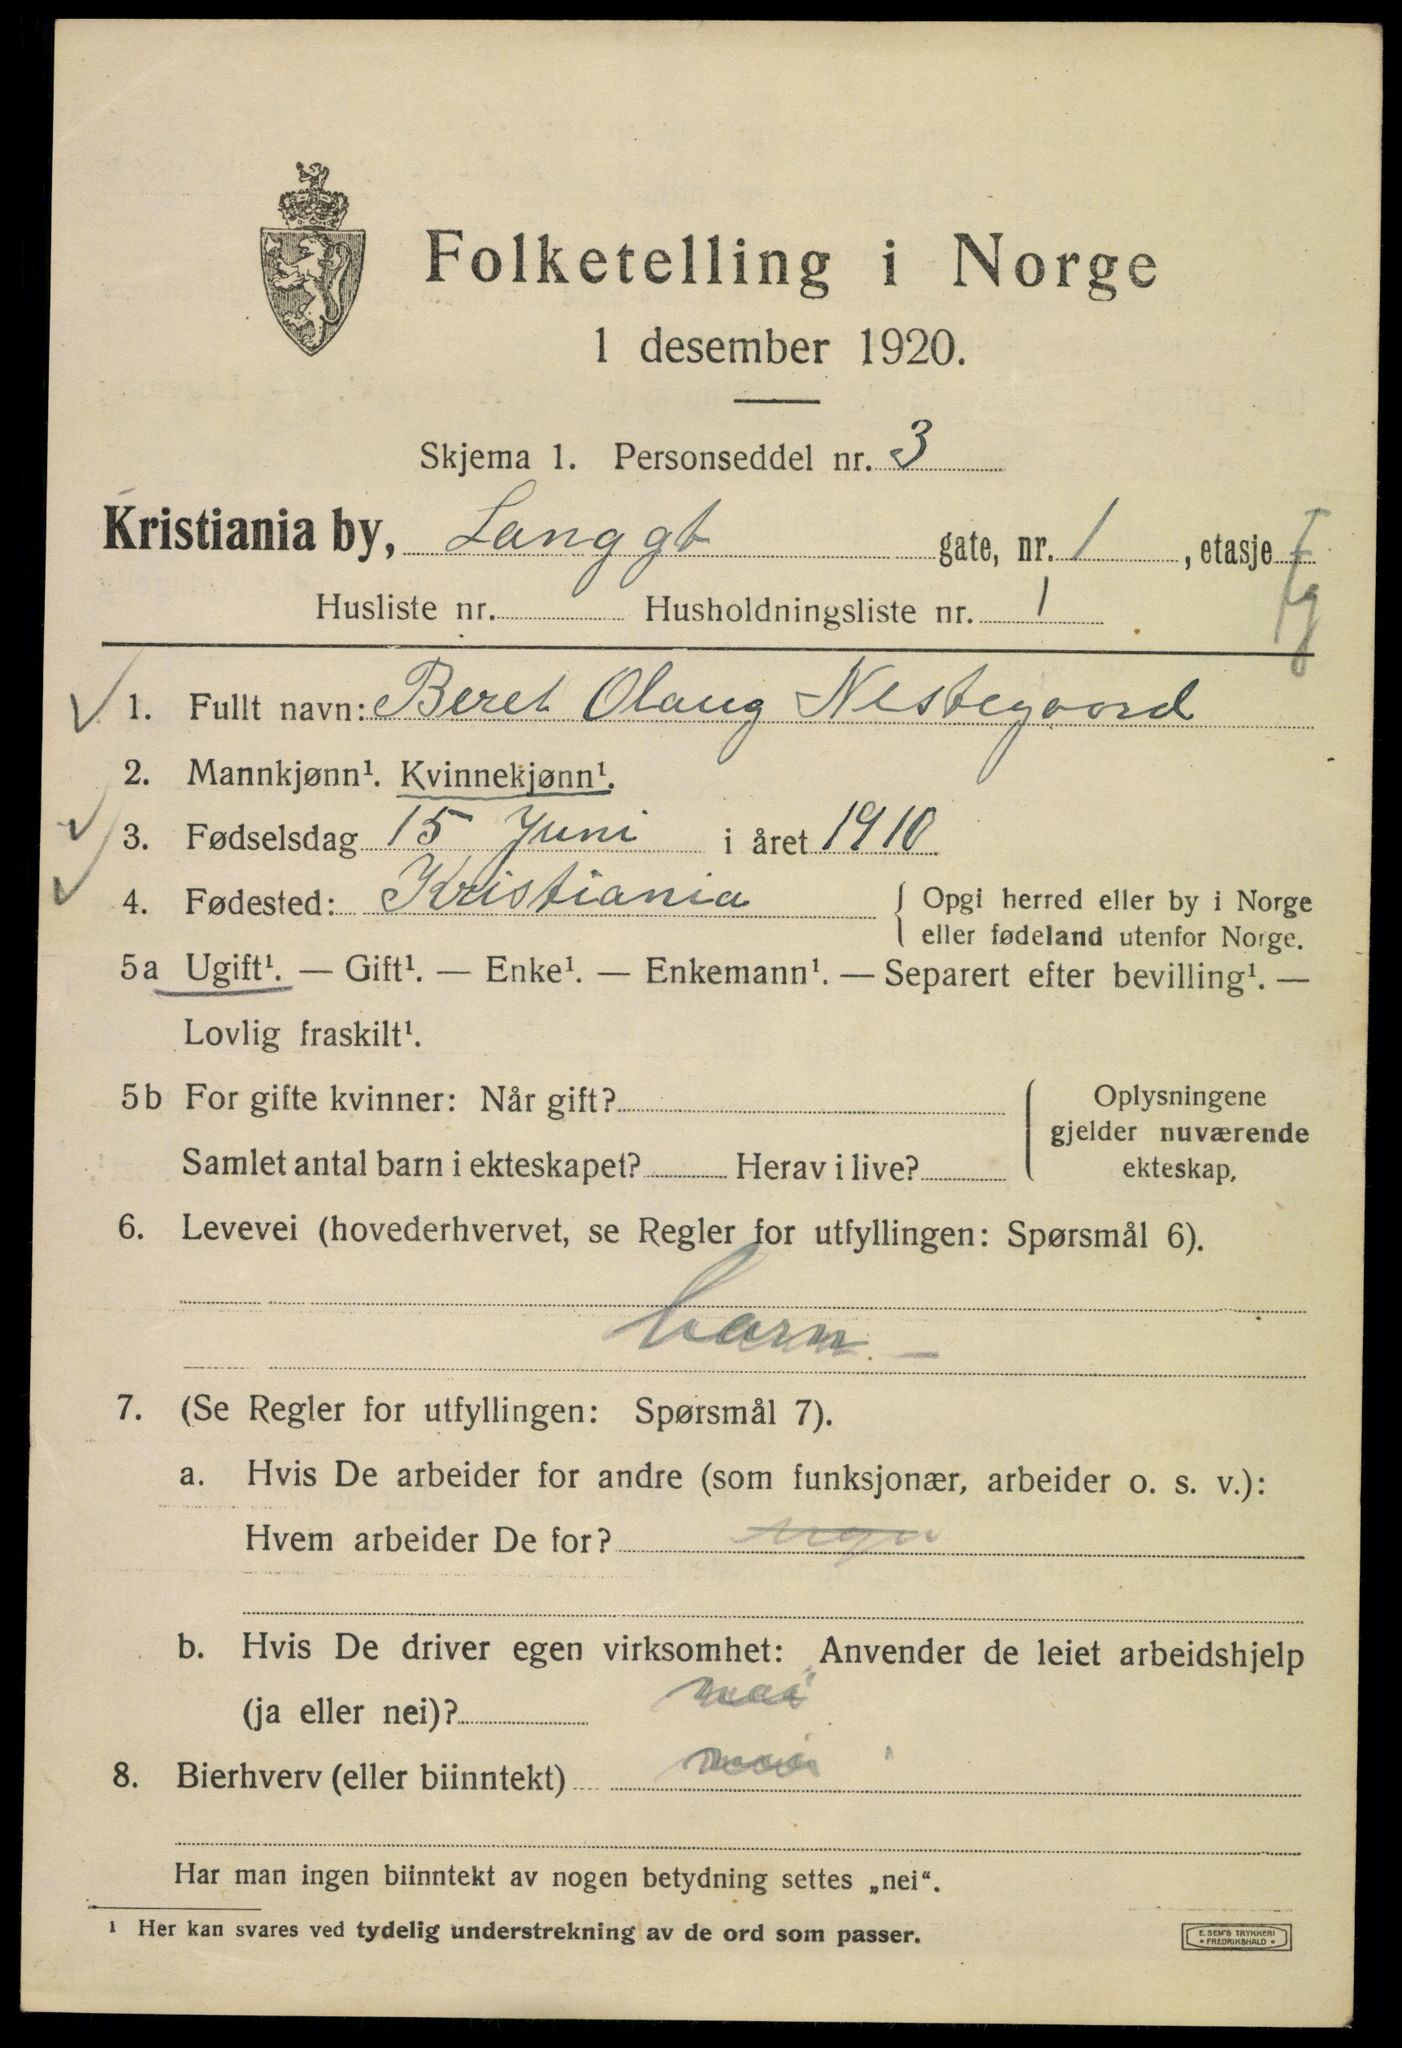 Folketelling i Norge
1 desember 1920.
Skjema 1. Personseddel nr. 3
Kristiania by, Langgt gate, nr. 1, etasje I
Husliste nr. Husholdningsliste nr. 1
1. Fullt navn: Beret Olaug Nestegaard
2. Mannkjønn¹. Kvinnekjønn¹.
3. Fødselsdag 15 Juni i året 1910
4. Fødested: Kristiania { Opgi herred eller by i Norge
eller fødeland utenfor Norge.
5a Ugift¹. — Gift¹. — Enke¹. — Enkemann¹. — Separert efter bevilling¹. —
Lovlig fraskilt¹.
5b For gifte kvinner: Når gift?
Samlet antal barn i ekteskapet? Herav i live?
{ Oplysningene
gjelder nuværende
ekteskap,
6. Levevei (hovederhvervet, se Regler for utfyllingen: Spørsmål 6).
barn. —
7. (Se Regler for utfyllingen: Spørsmål 7).
a. Hvis De arbeider for andre (som funksjonær, arbeider o. s. v.):
Hvem arbeider De for?
b. Hvis De driver egen virksomhet: Anvender de leiet arbeidshjelp
(ja eller nei)?
8. Bierhverv (eller biinntekt)
Har man ingen biinntekt av nogen betydning settes „nei“.
¹ Her kan svares ved tydelig understrekning av de ord som passer.
E. SEM'S TRYKKERI
* FREDRIKSHALD *